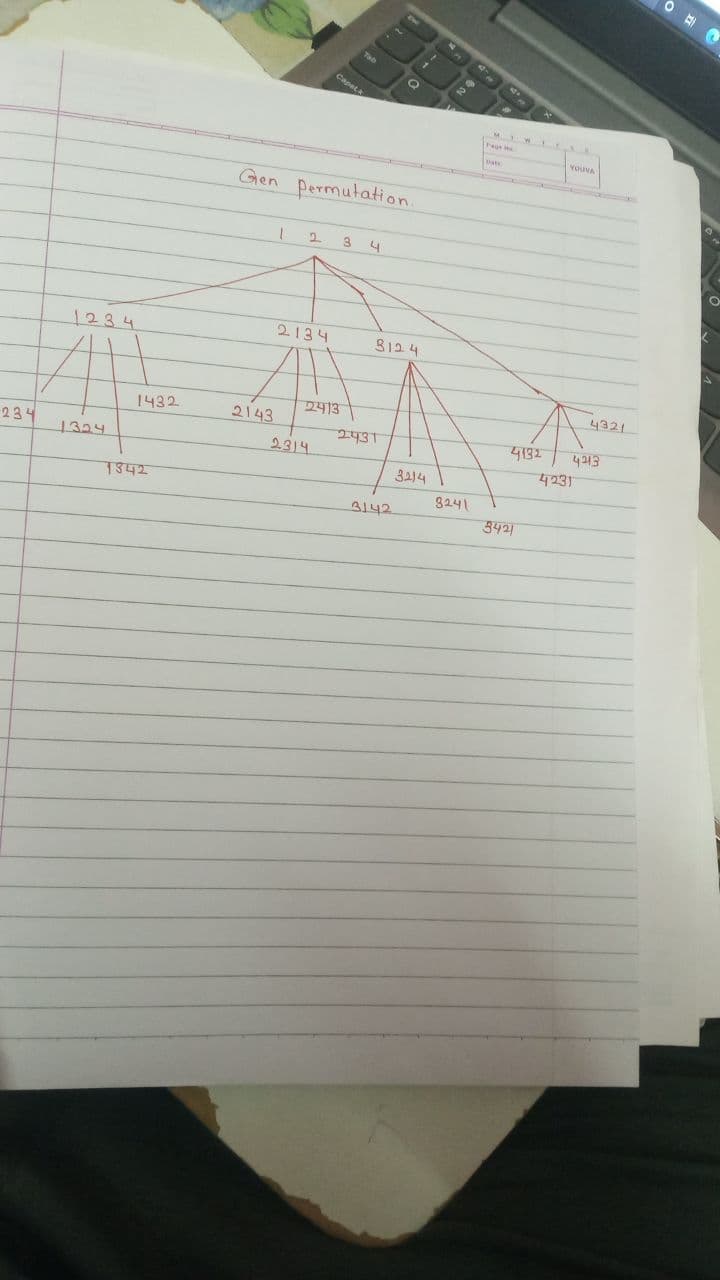 Tab
CapsLk
Esc
Q
M T W T F S S
Page No.:
Date:
YOUVA
Gen Permutation.
1 2 3 4
1234
2134
3124
234
1324
1342
1432
2143
2314
2413
2431
3142
3214
3241
3421
4132
4231
4213
4321